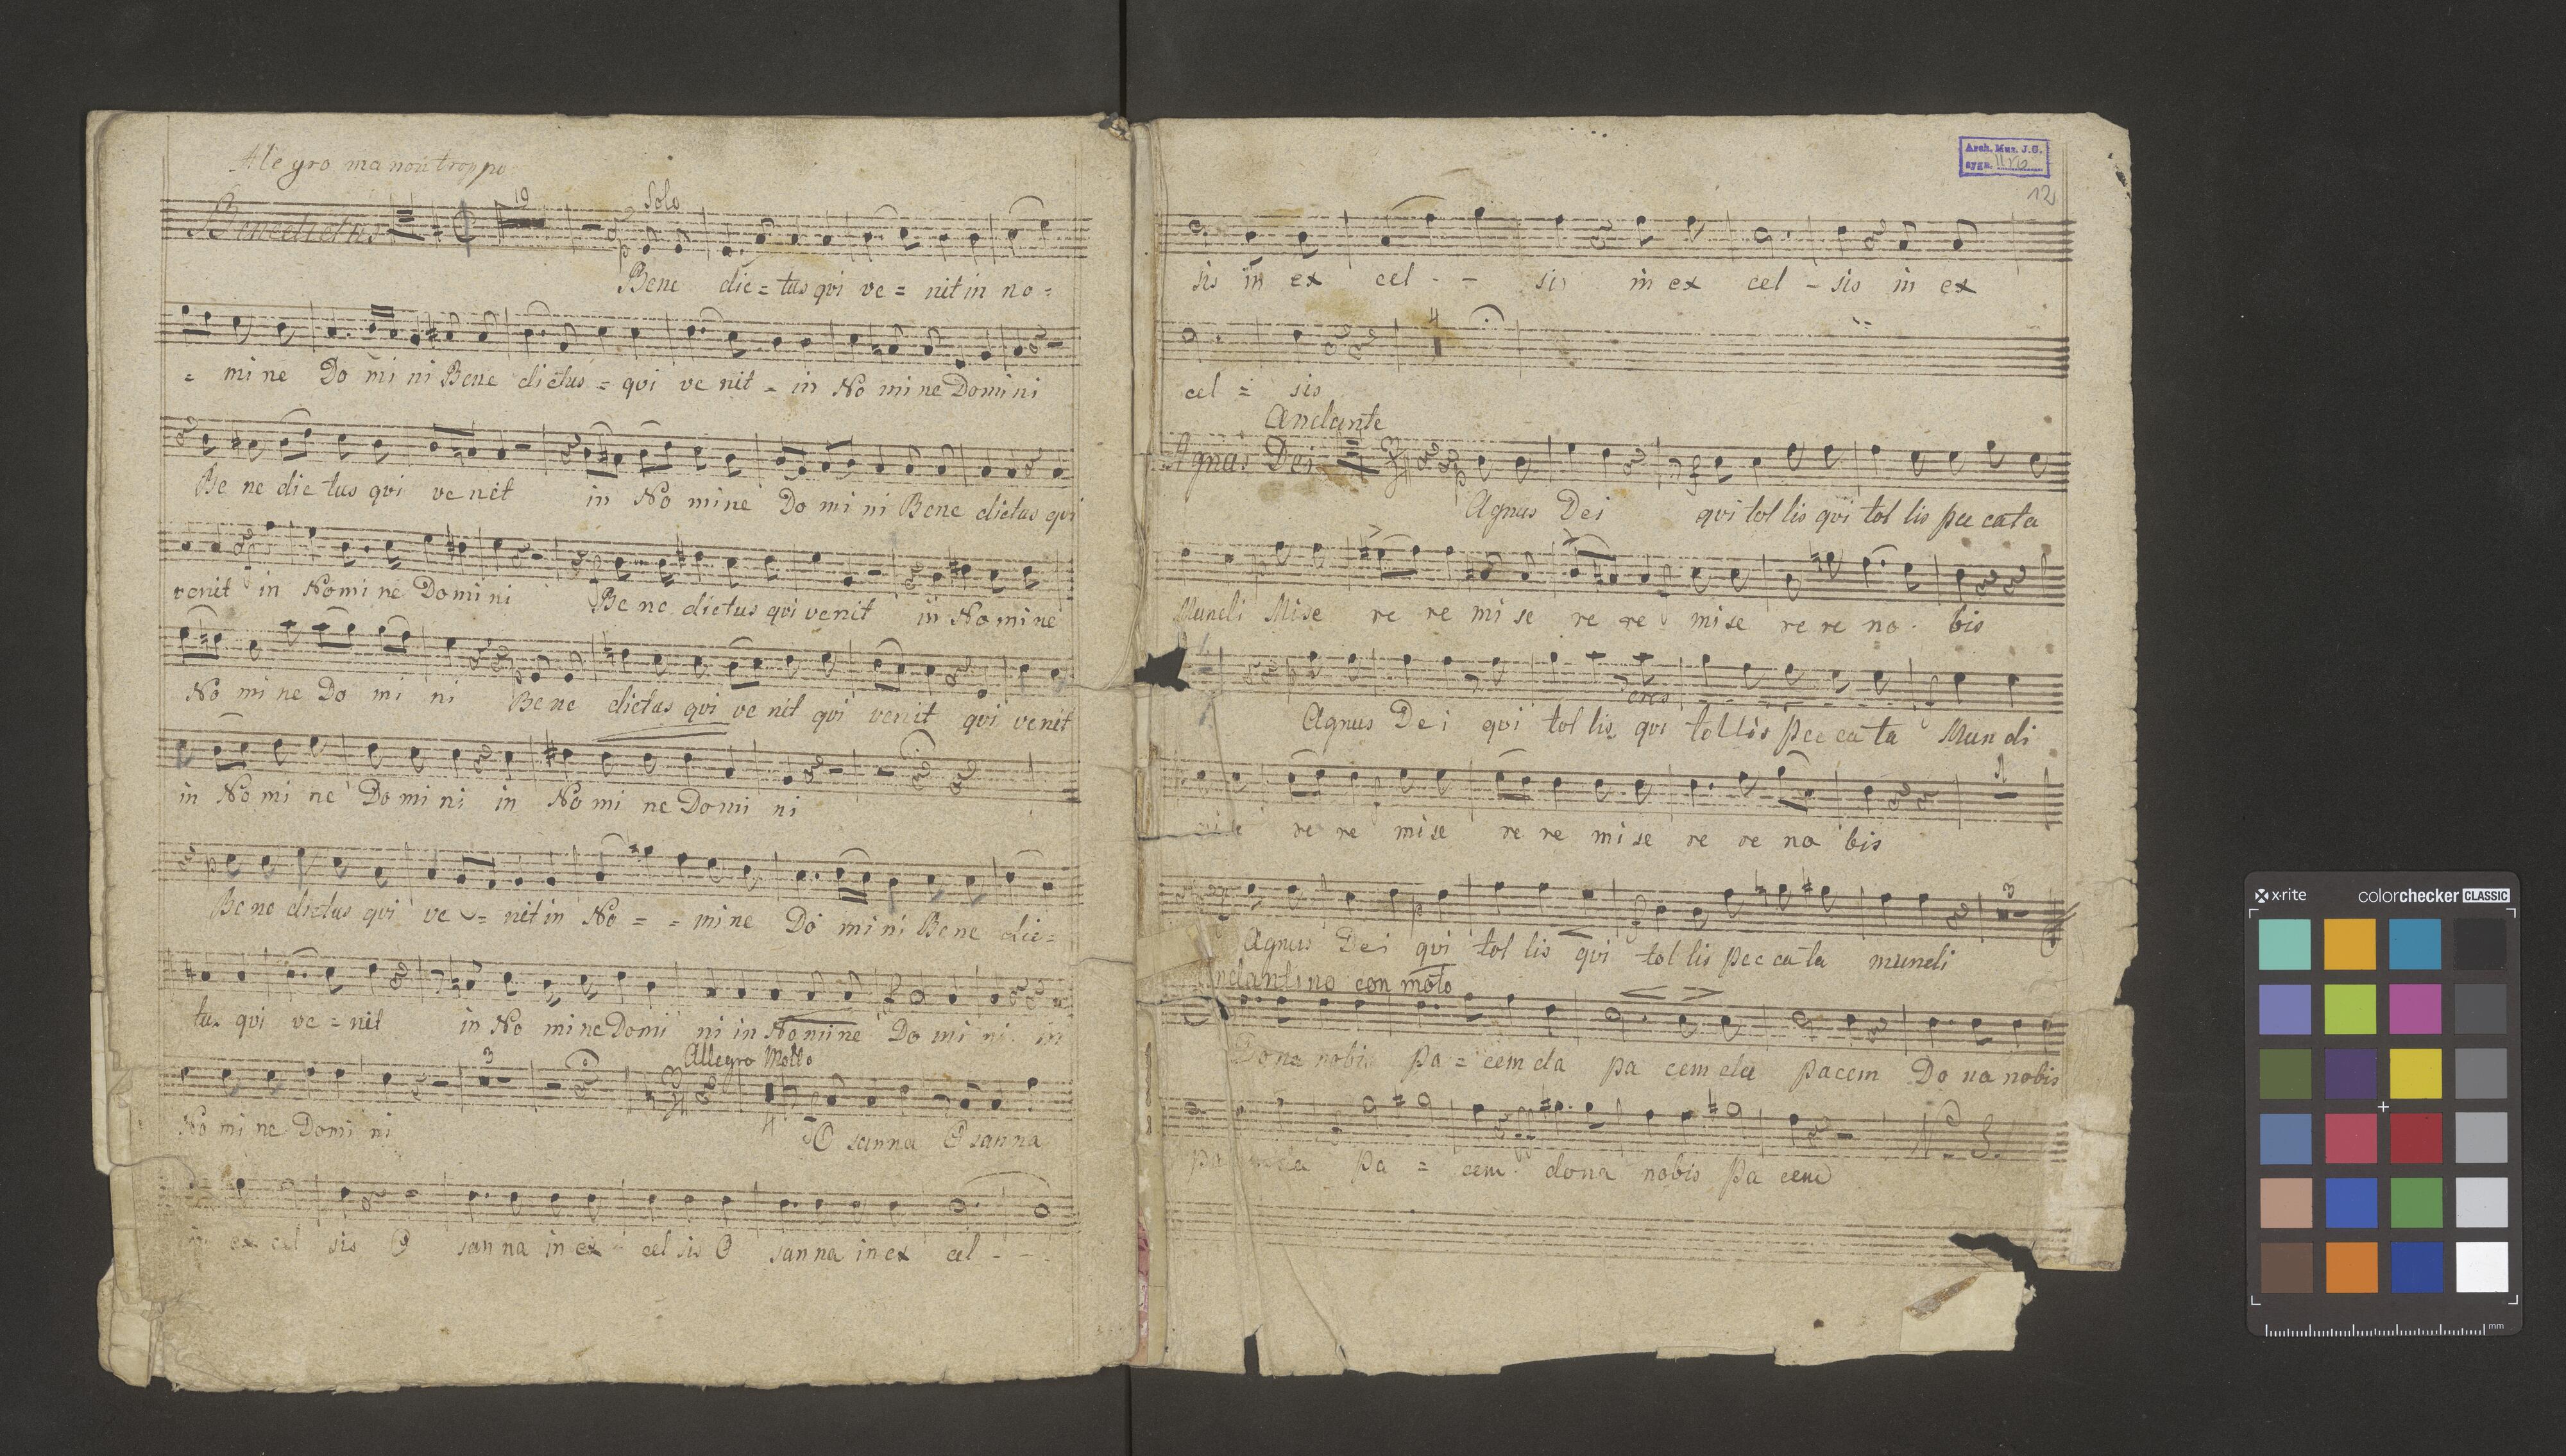 Allegro ma non troppo
19 Solo
Benedictus
Bene dic = tus qui ve = nit in no =
= mi ne Do mi ni Bene dictus = qui ve nit = in No mi ne Domi ni
Be ne dic tus qui ve nit in No mi ne Do mi ni Bene dictus qui
venit in No mi ne Do mi ni Be ne dictus qui venit in No mi ne
No mi ne Do mi ni Be ne dictus qui ve nit qui venit qui venit
in No mi ne Do mi ni in No mi ne Domi ni
p
Be ne dictus qui ve = nit in No = = mi ne Do mi ni Be ne dic =
tus qui ve = nit in No mi ne Domi ni in No mi ne Do mi ni in
Allegro Molto
3
4
No mi ne Domi ni O sanna O sanna
ex cel sis O san na in ex cel sis O san na in ex cel - -
Arch. Muz. J.G.
sygn.
12
sis in ex cel - - sis in ex cel - sis in ex
4
cel = sis
Andante
Agnus Dei 3/4
Agnus Dei qui tol lis qui tol lis pec cata
Mundi Mise re re mi se re re mi se re re no bis
cres
Agnus De i qui tol lis qui tol lis pec ca ta Mun di
re re mise re re mi se re re no bis
3
Agnus De i qui tol lis qui tol lis pec ca ta mundi
con moto
Dona nobis pa = cem da pa cem da pacem Do na nobis
pa = cem dona nobis pa cem